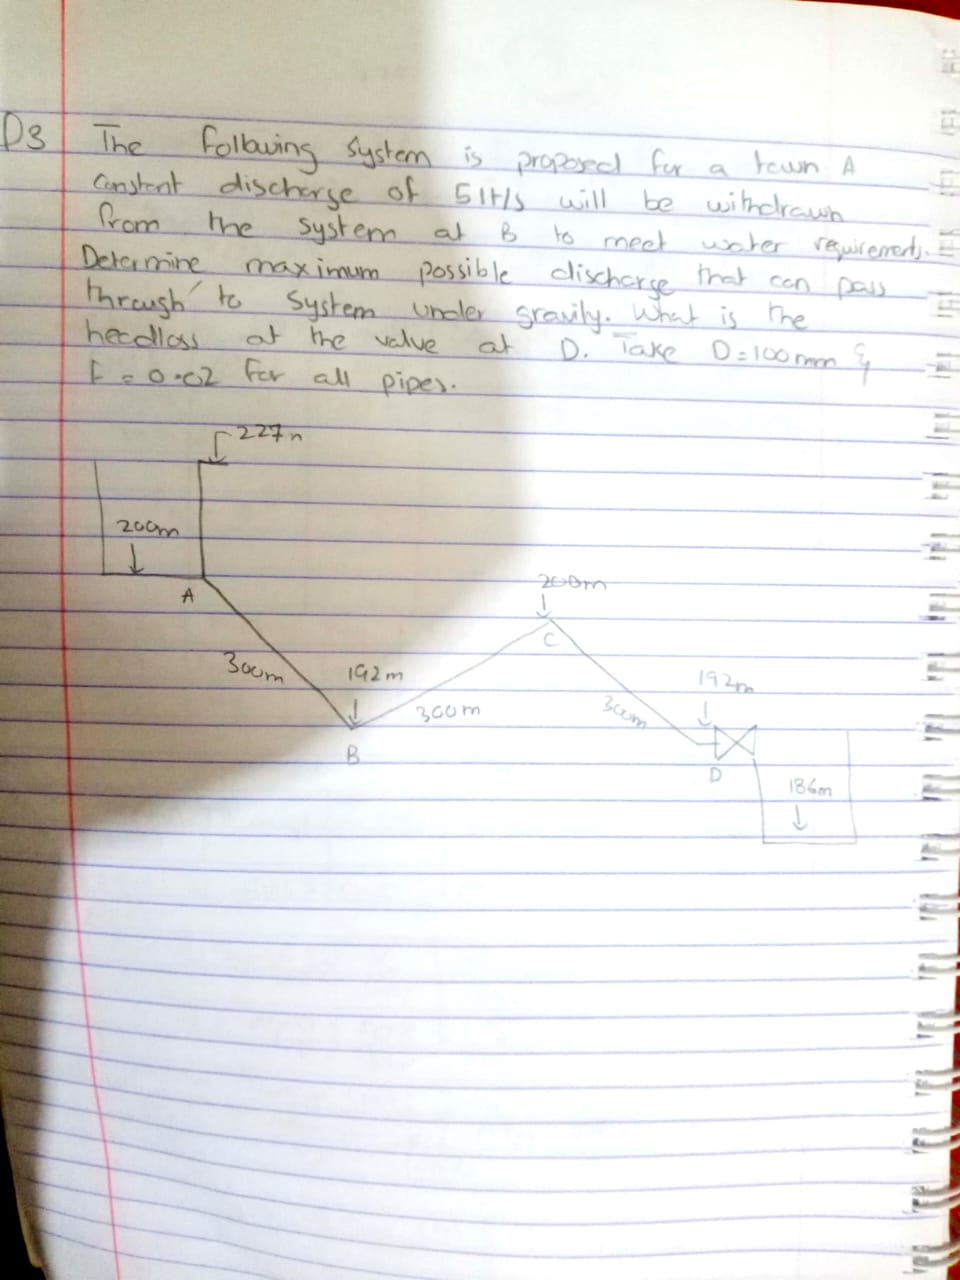 D3 The following system is proposed for a town A
constant discharge of 5 lt/s will be withdrawn
from the system at B to meet water requirements.
Determine maximum possible discharge that can pass
through to system under gravity. What is the
headloss at the value at D. Take D=100mm &
F = 0.02 for all pipes.
227m
200m
A
200m
C
300m
192m
300m
300m
192m
B
D
186m